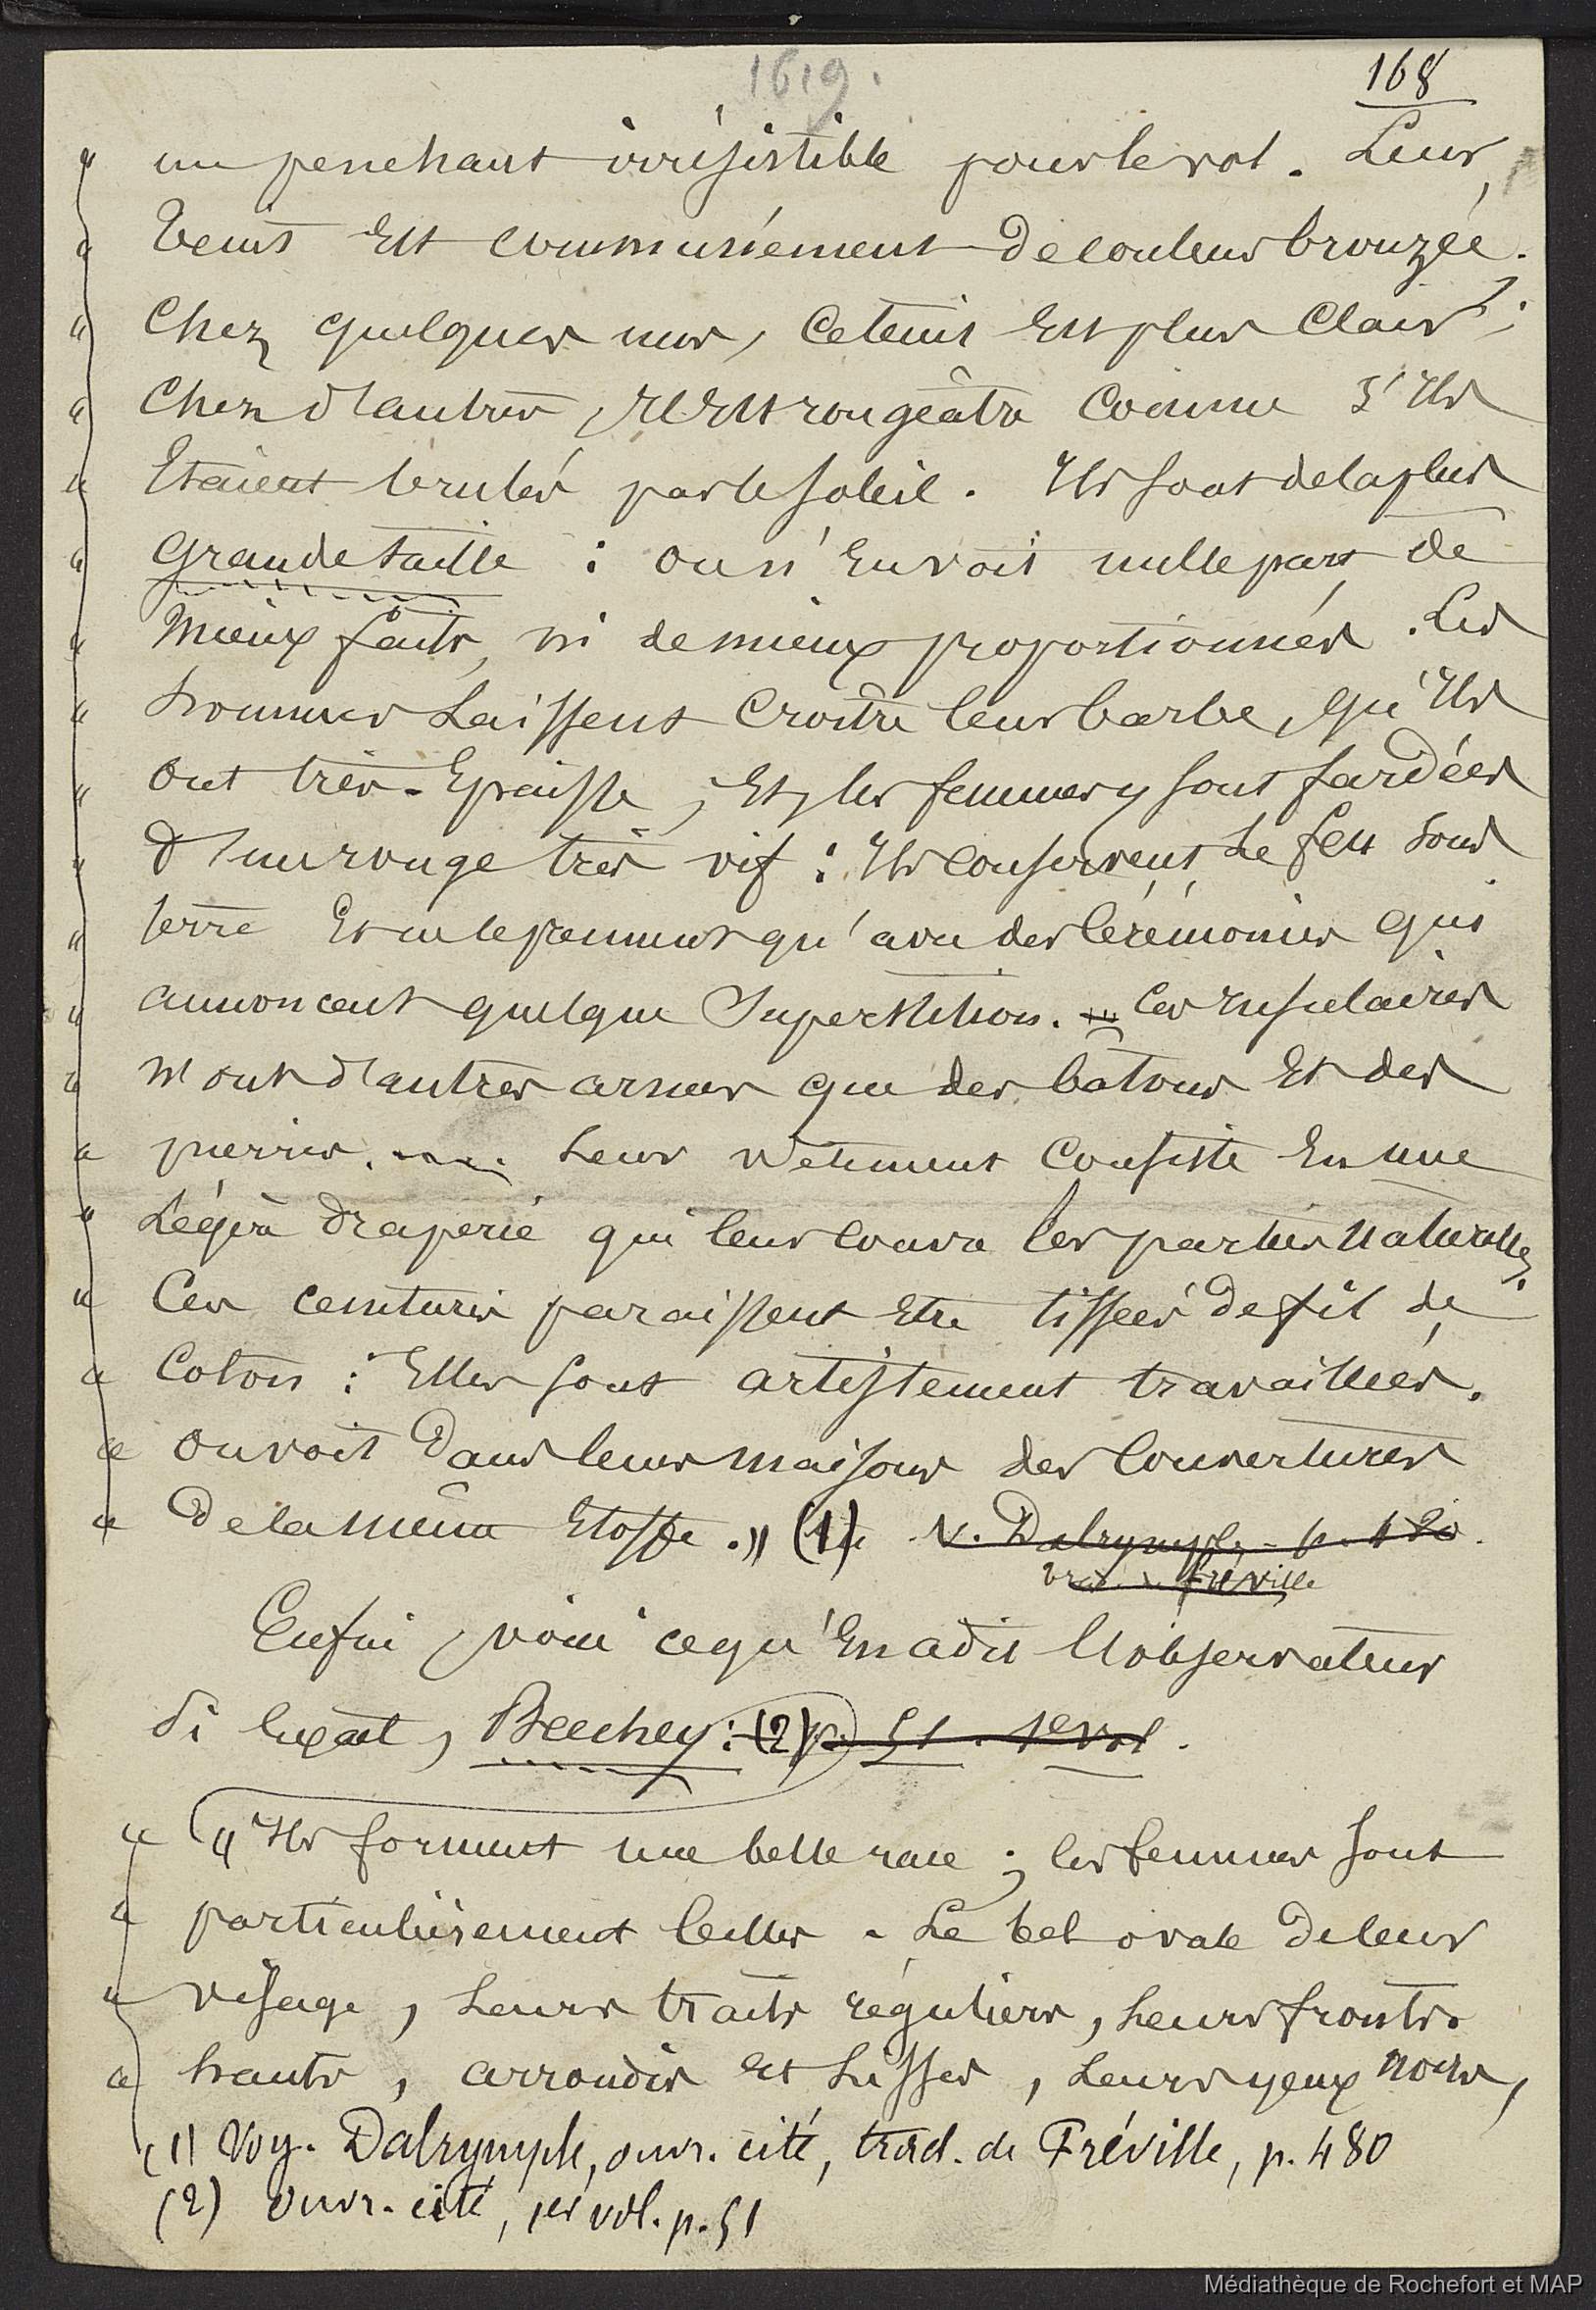 1619.
168
" un penchant irrésistible pour le vol. Leur
" teint est communément de couleur bronzée.
" Chez quelques uns, ce teint est plus clair ;
" Chez d'autres, il est rougeâtre comme s'ils
" étaient brulés par le soleil. Ils sont de la plus
" grande taille : on n'en voit nulle part de
" mieux faits, ni de mieux proportionnés. Les
" hommes laissent croître leur barbe, qu'ils
" ont très-épaisse ; et, les femmes y sont fardées
" d'un rouge très vif : Ils conservent le feu sous
" terre et ne le prennent qu'avec des cérémonies qui
" annoncent quelque superstition. ... Ces insulaires
" n'ont d'autres armes que des bâtons et des
" pierres. .... Leur vêtement consiste en une
" légère draperie qui leur couvre les parties naturelles.
" Ces ceintures paraissent être tissées de fil de
" coton : Elles sont artistement travaillées.
" on voit dans leurs maisons des couvertures
" de la même étoffe. » (1) V. Dalrymple - p. 480.
trad. de Fréville
Enfin, voici ce qu'en a dit l'observateur
si exact, Beechey : (2) p. 51. 1er vol.
" « Ils forment une belle race ; les femmes sont
" particulièrement belles. Le bel ovale de leur
" visage, leurs traits réguliers, leurs fronts
" hauts, arrondis et lisses, leurs yeux noirs,
(1) Voy. Dalrymple, ouvr. cité, trad. de Fréville, p. 480
(2) Ouvr. cité, 1er vol. p. 51
Médiathèque de Rochefort et MAP